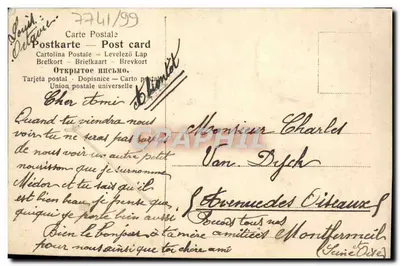 7741/99
Louise
Octavie
Carte Postale
Postkarte — Post card
Cartolina Postale – Levelező Lap
Brefkort – Briefkaart – Brevkort
Открытое письмо.
Tarjeta postal – Dopisnice – Carte po
Union postale universelle
à bientôt
Cher Ami
Quand tu viendra nous
voir tu ne seras pas
de nous voir un autre petit
nourisson que je surnomme
Médor et tu sais qu'il
est bien beau je pense que
quiqui se porte bien aussi
Bien le bonjour à ta mère amitiées
pour nous ainsi que toi chère ami
CPARAMA
Monsieur Charles
Van Dyck
Avenue des Oiseaux
tous nos
Montfermeil
(Seine Oise)